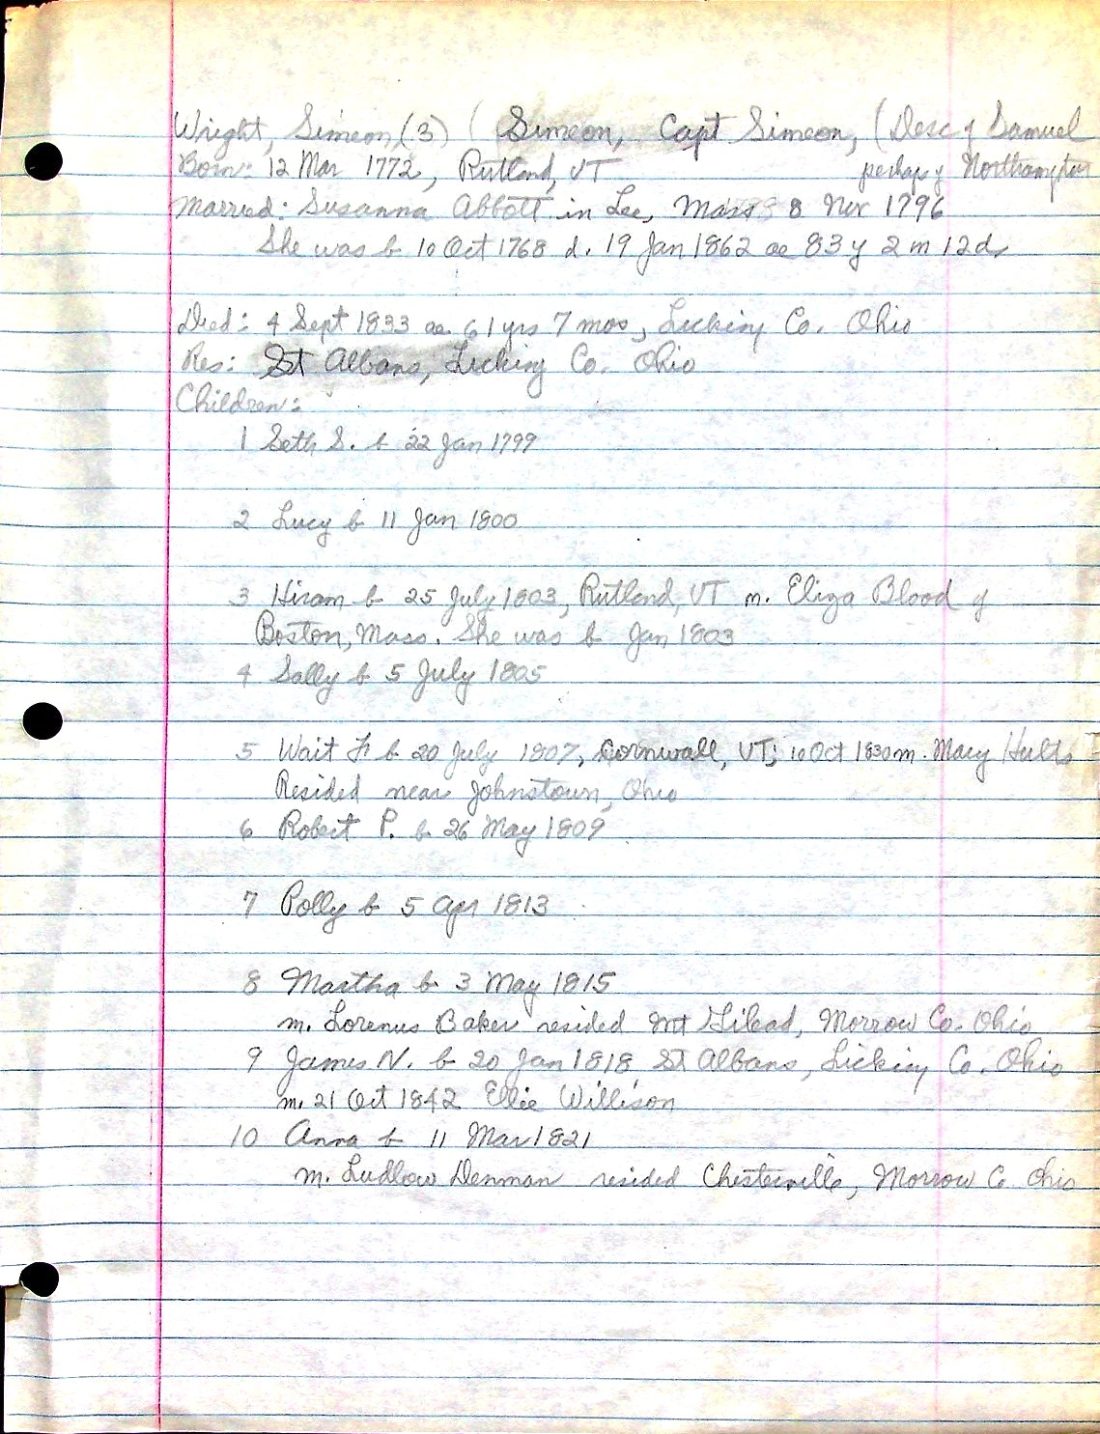 Wright, Simeon (3) ( Simeon, Capt Simeon, (Desc of Samuel
Born: 12 Mar 1772, Rutland, VT perhap of Northampton
Married: Susanna Abbott in Lee, Mass 8 Nov 1796
She was b 10 Oct 1768 d. 19 Jan 1862 ae 83 y 2 m 12 d,
Died: 4 Sept 1833 ae 61 yrs 7 mos, Licking Co. Ohio
Res: St Albans, Licking Co. Ohio
Children:
1 Seth S. b 22 Jan 1799
2 Lucy b 11 Jan 1800
3 Hiram b 25 July 1803, Rutland, VT m. Eliza Blood of
Boston, Mass. She was b Jan 1803
4 Sally b 5 July 1805
5 Wait F b 20 July 1807, Cornwall, VT; 10 Oct 1830 m. Mary Hults
Resided near Johnstown, Ohio
6 Robert P. b 26 May 1809
7 Polly b 5 Apr 1813
8 Martha b 3 May 1815
m. Lorenus Baker resided Mt Gilead, Morrow Co. Ohio
9 James N. b 20 Jan 1818 St Albans, Licking Co. Ohio
m. 21 Oct 1842 Ellie Willison
10 Anna b 11 Mar 1821
m. Ludlow Denman resided Chesterville, Morrow C Ohio